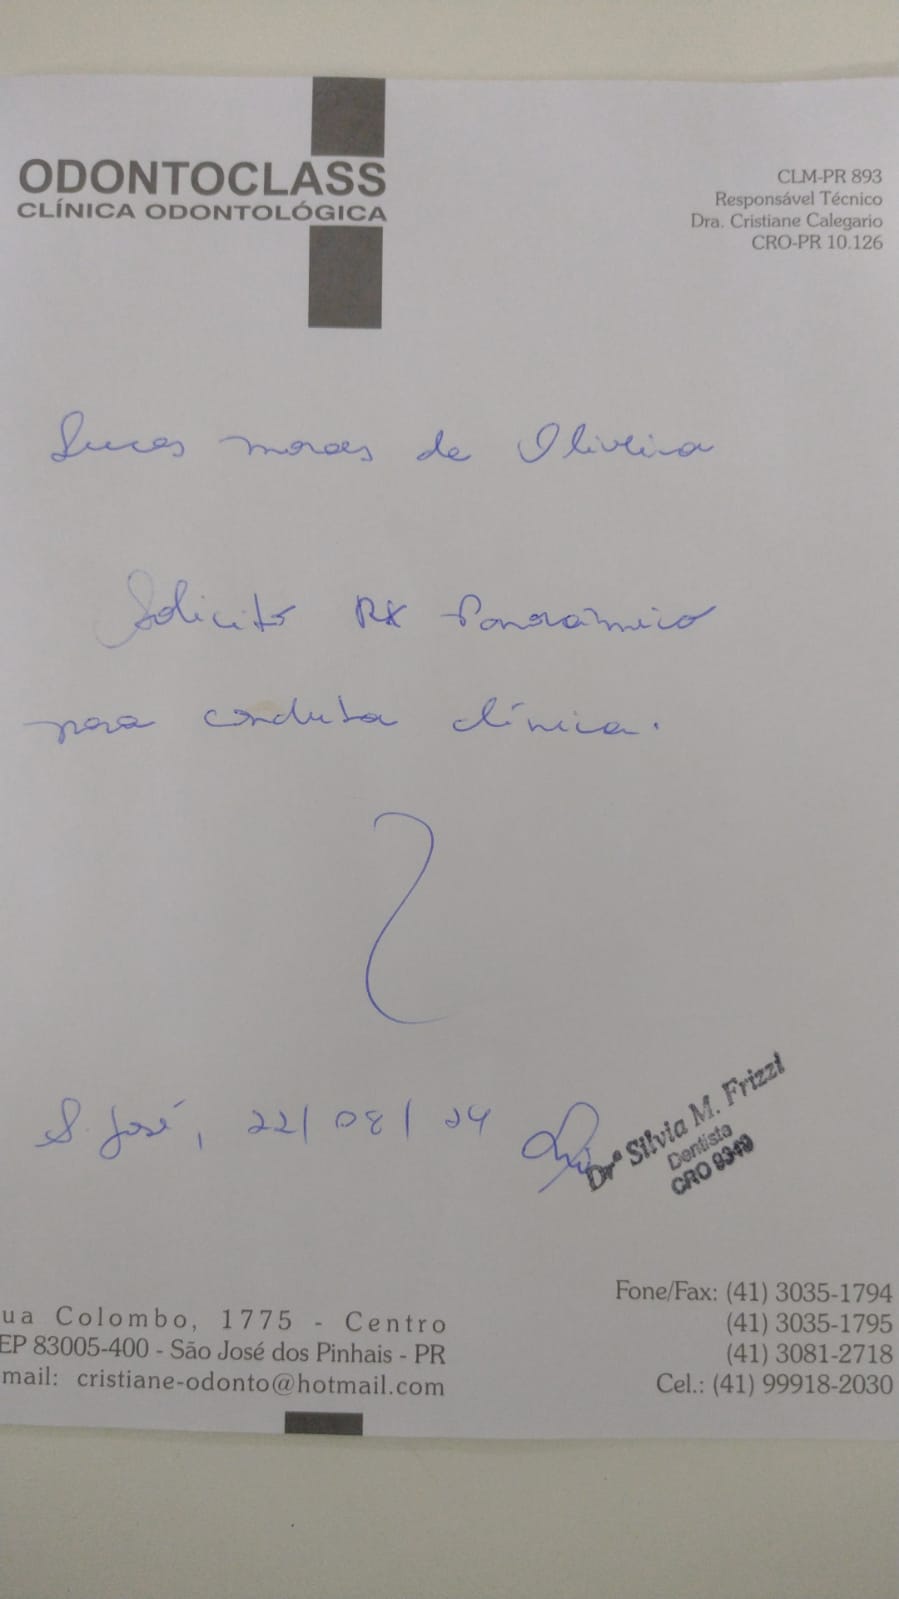 ODONTOCLASS
CLÍNICA ODONTOLÓGICA
CLM-PR 893
Responsável Técnico
Dra. Cristiane Calegario
CRO-PR 10.126
Lucas Moraes de Oliveira
Solicito RX Panorâmico
para conduta clínica.
S. José, 22/08/24
Drª Silvia M. Frizzi
Dentista
CRO 9349
ua Colombo, 1775 - Centro
EP 83005-400 - São José dos Pinhais - PR
mail: cristiane-odonto@hotmail.com
Fone/Fax: (41) 3035-1794
(41) 3035-1795
(41) 3081-2718
Cel.: (41) 99918-2030